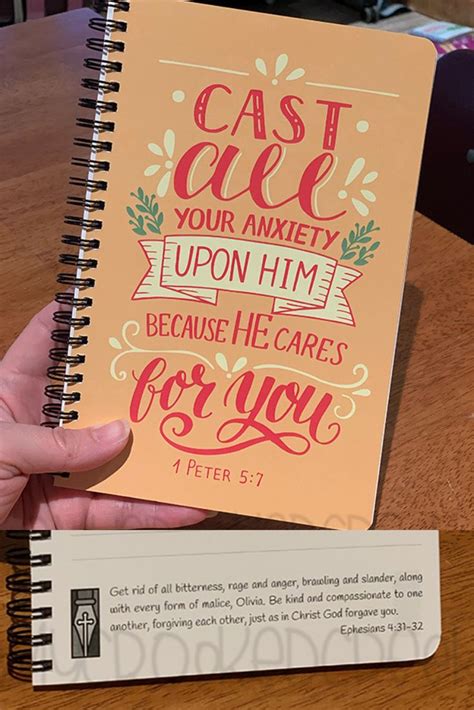 CAST
all
YOUR ANXIETY
UPON HIM
BECAUSE HE CARES
for you
1 PETER 5:7
Get rid of all bitterness, rage and anger, brawling and slander, along
with every form of malice, Olivia. Be kind and compassionate to one
another, forgiving each other, just as in Christ God forgave you.
Ephesians 4:31-32